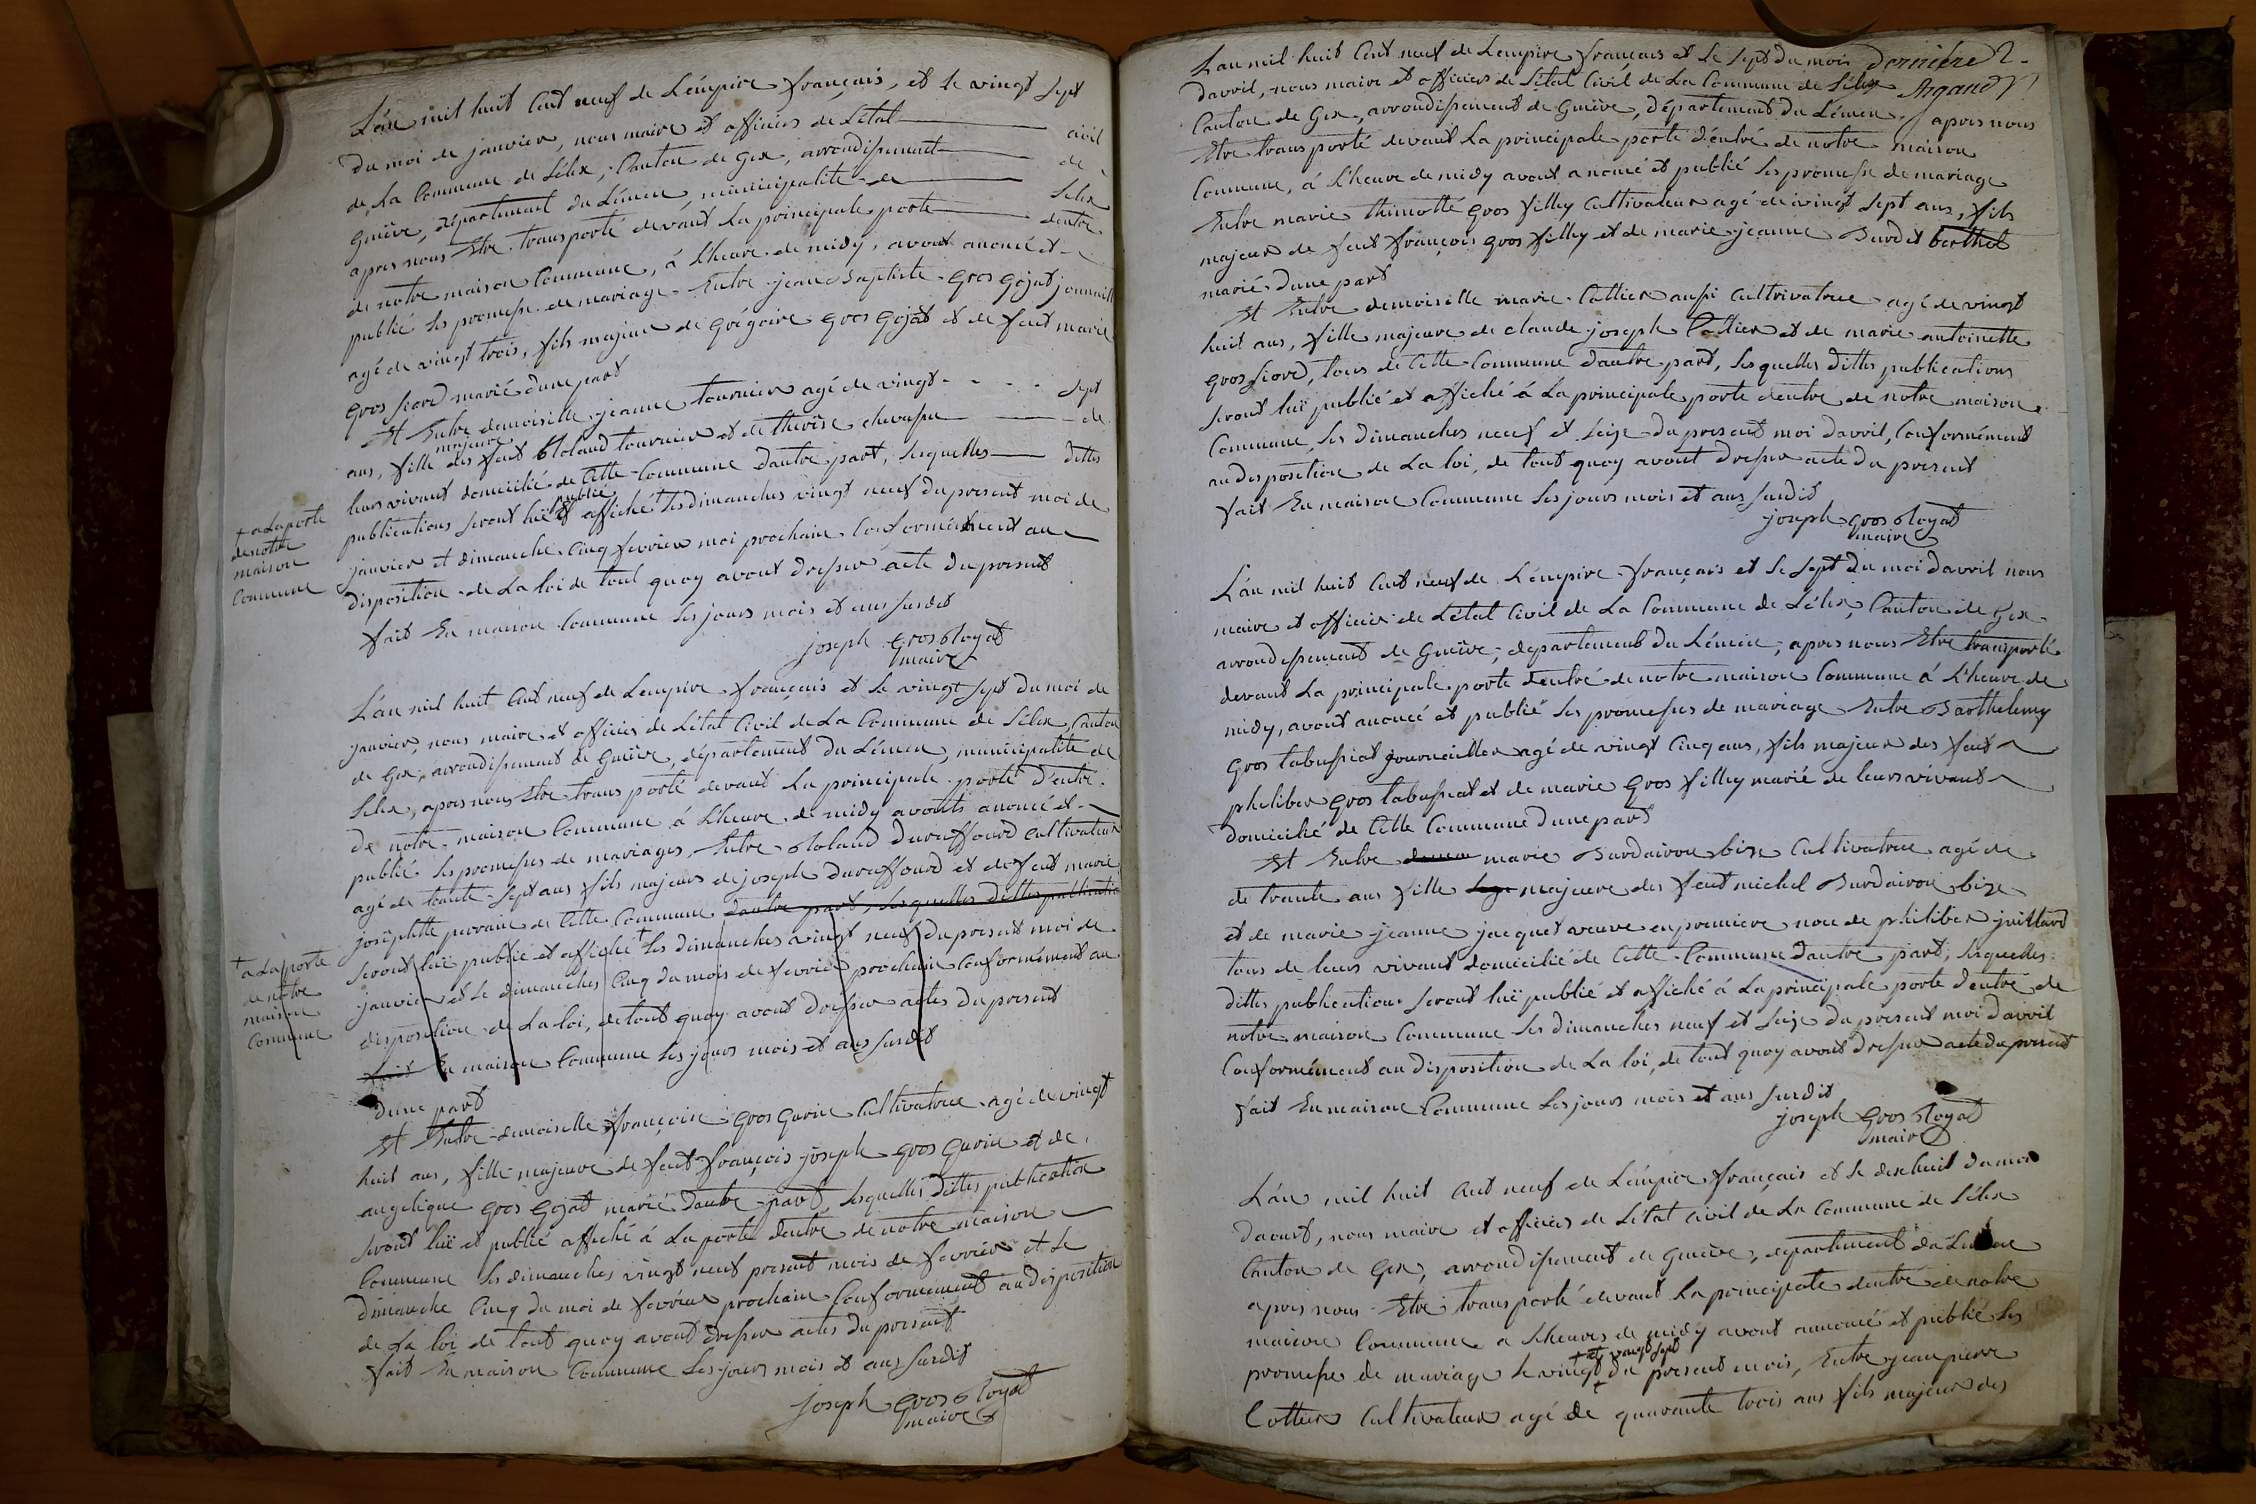 L'án mil huit Cent neuf de L'émpire français, et le vingt sept
du moi de janvier, nous maire et officiers de L'état civil
de La Commune de Lélex, Canton de Gex, arrondissement de
Genève, département du Léman, municipalité de Lélex
apres nous Etre transporté devant La principale porte dentre
de notre maison Commune, á L'heure de midy, avont anoncé et
publié les promesse de mariage Entre jean Baptiste Gros Gojat journaill
agé de vingt trois, fils majeur de Grégoire Gros Gojat et de feut marie
Gros fiord marié dune part
Et Entre demoiselle jeanne tournier agé de vingt - - - - sept
ans, fille majeure des feut Roland tournier et de therèse chevassu de
leurs vivant domicilié de Cette Commune dautre part, lesquelles dittes
publications seront luë publié et affiché + les dimanches vingt neuf du present moi de
+ a La porte
de notre
maison
Commune
janvier et dimanche Cinq fevrier moi prochain Conformément au
disposition de La loi de tout quoy avont dressér acte du present
fait En maison Commune les jours mois et ans susdit
joseph Gros Royat
maire
L'án mil huit Cent neuf de L'empire français et le vingt sept du moi de
janvier, nous maire et officiers de L'état Civil de La Commune de Lélex, Canton
de Gex, arrondissement de Genève, département du Léman, municipalité de
Lélex, apres nous Etre transporté devant La principale porte d'entre
de notre maison Commune á L'heure de midy avonts anoncé et
publié les promesses de mariages, Entre Roland Duraffourd Cultivateur
agé de trente sept ans fils majeurs de joseph Duraffourd et de feut marie
josephtte de Cette Commune dautre part, lesquelles dittes publicatio
seront luë publié et affiché + les dimanches vingt neuf du present moi de
+ a La porte
de notre
maison
Commune
janvier et le dimanches Cinq du mois de fevrier prochain Conformément au
disposition de La loi, de tout quoy avont dressér actes du present
fait En maison Commune les jours mois et ans susdit
dune part
Et Entre demoiselle françoise Gros Gurin Cultivatrice agé de vingt
huit ans, fille majeure de feut françois joseph Gros Gurin et de
angelique Gros Gojat marié Dautre part, lesquelles dittes publication
seront luë et publié affiché á La porte dentre de notre maison
Commune les dimanches vingt neuf present mois de fevrier et le
dimanche Cinq du moi de fevrier prochain Conformément au disposition
de La loi de tout quoy avont dressér actes du present
fait En maison Commune les jours mois et ans susdit
joseph Gros Royat
maire
L'an mil huit Cent neuf de L'empire français et le sept du mois
dernière
Argand
davril, nous maire et officiers de L'état Civil de La Commune de Lélex
Canton de Gex, arrondissement de Genève, département du Léman, apres nous
Etre transporté devant La principale porte d'entré de notre maison
Commune, á L'heure de midy avont anoncé et publié les promesse de mariage
Entre marie thimotté Gros filley Cultivateur agé de vingt sept ans, fils
majeur de feut françois Gros filley et de marie jeanne Burdet berthet
marié dune part
Et Entre demoiselle marie Cottier aussi Cultivatrice agé de vingt
huit ans, fille majeure de Claude joseph Cottier et de marie antoinette
Gros fiord, tous de Cette Commune dautre part, lesquelles dittes publications
seront luë publié et affiché á La principale porte dentre de notre maison
Commune, les dimanches neuf et seize du present moi davril, Conformément
au disposition de La loi, de tout quoy avont dressér acte du present
fait En maison Commune les jours mois et ans susdit
joseph Gros Royat
maire
L'án mil huit Cent neuf de L'empire français et le sept du moi davril nous
maire et officier de L'état Civil de La Commune de Lélex, Canton de Gex
arrondissement de Genève, departement du Léman, apres nous Etre transporté
devant La principale porte d'entré de notre maison Commune á L'heure de
midy, avont anoncé et publié les promesses de mariage Entre Barthelemy
Gros tabussiat journaillier agé de vingt Cinq ans, fils majeur des feut
philiber Gros tabussiat et de marie Gros filley marié de leurs vivant
domicilié de Cette Commune dune part
Et Entre marie Burdairon bize Cultivatrice agé de
de trante ans fille majeure des feut michel Burdairon bize
et de marie jeanne jacquet veuve en premiere noce de philiber juillard
tous de leurs vivant domicilié de Cette Commune dautre part, lesquelles
dittes publications seront luë publié et affiché á La principale porte d'entré de
notre maison Commune les dimanches neuf et seize du present moi davril
Conformément au disposition de La loi, de tout quoy avont dressér acte du present
fait En maison Commune les jours mois et ans susdit
joseph Gros Royat
maire
L'án mil huit Cent neuf de L'émpire français et le dixhuit du moi
daout, nous maire et officiers de L'état civil de La Commune de Lélex
Canton de Gex, arrondissement de Genève, departement du Léman
apres nous Etre transporté devant La principale dentré de notre
maison Commune a L'heures de midy avont annoncé et publié les
promesse de mariage le vingt + et vingt sept du present mois, Entre jean pierre
Cottier Cultivateur agé de quarante trois ans fils majeur des